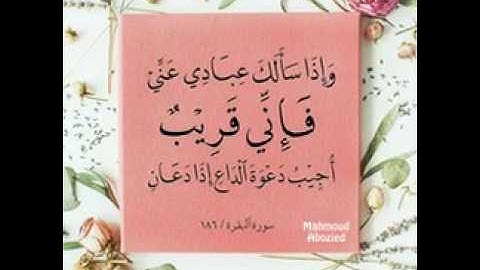 وَإِذَا سَأَلَكَ عِبَادِي عَنِّيْ
فَإِنِّي قَرِيْبٌ
أُجِيْبُ دَعْوَةَ ٱلدَّاعِ إِذَا دَعَانِ
سورة البقرة / ١٨٦
Mahmoud
Abozied